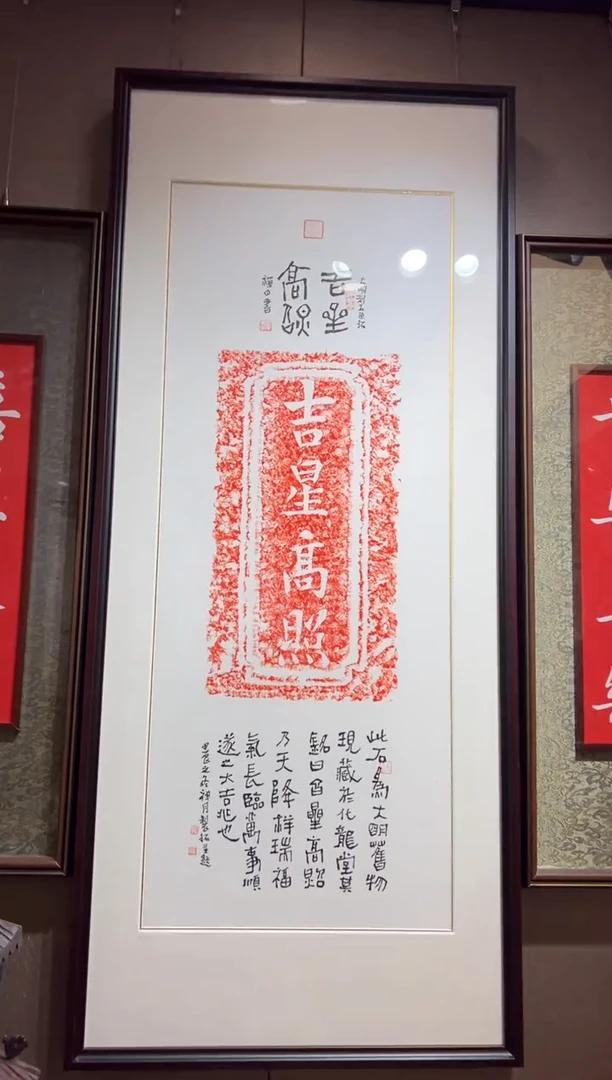 吉星
高照
吉星高照
此石為大明舊物
現藏於化龍堂其
銘曰吉星高照
乃天降祥瑞福
氣長臨萬事順
遂之大吉兆也
甲辰之冬禪月製拓並題